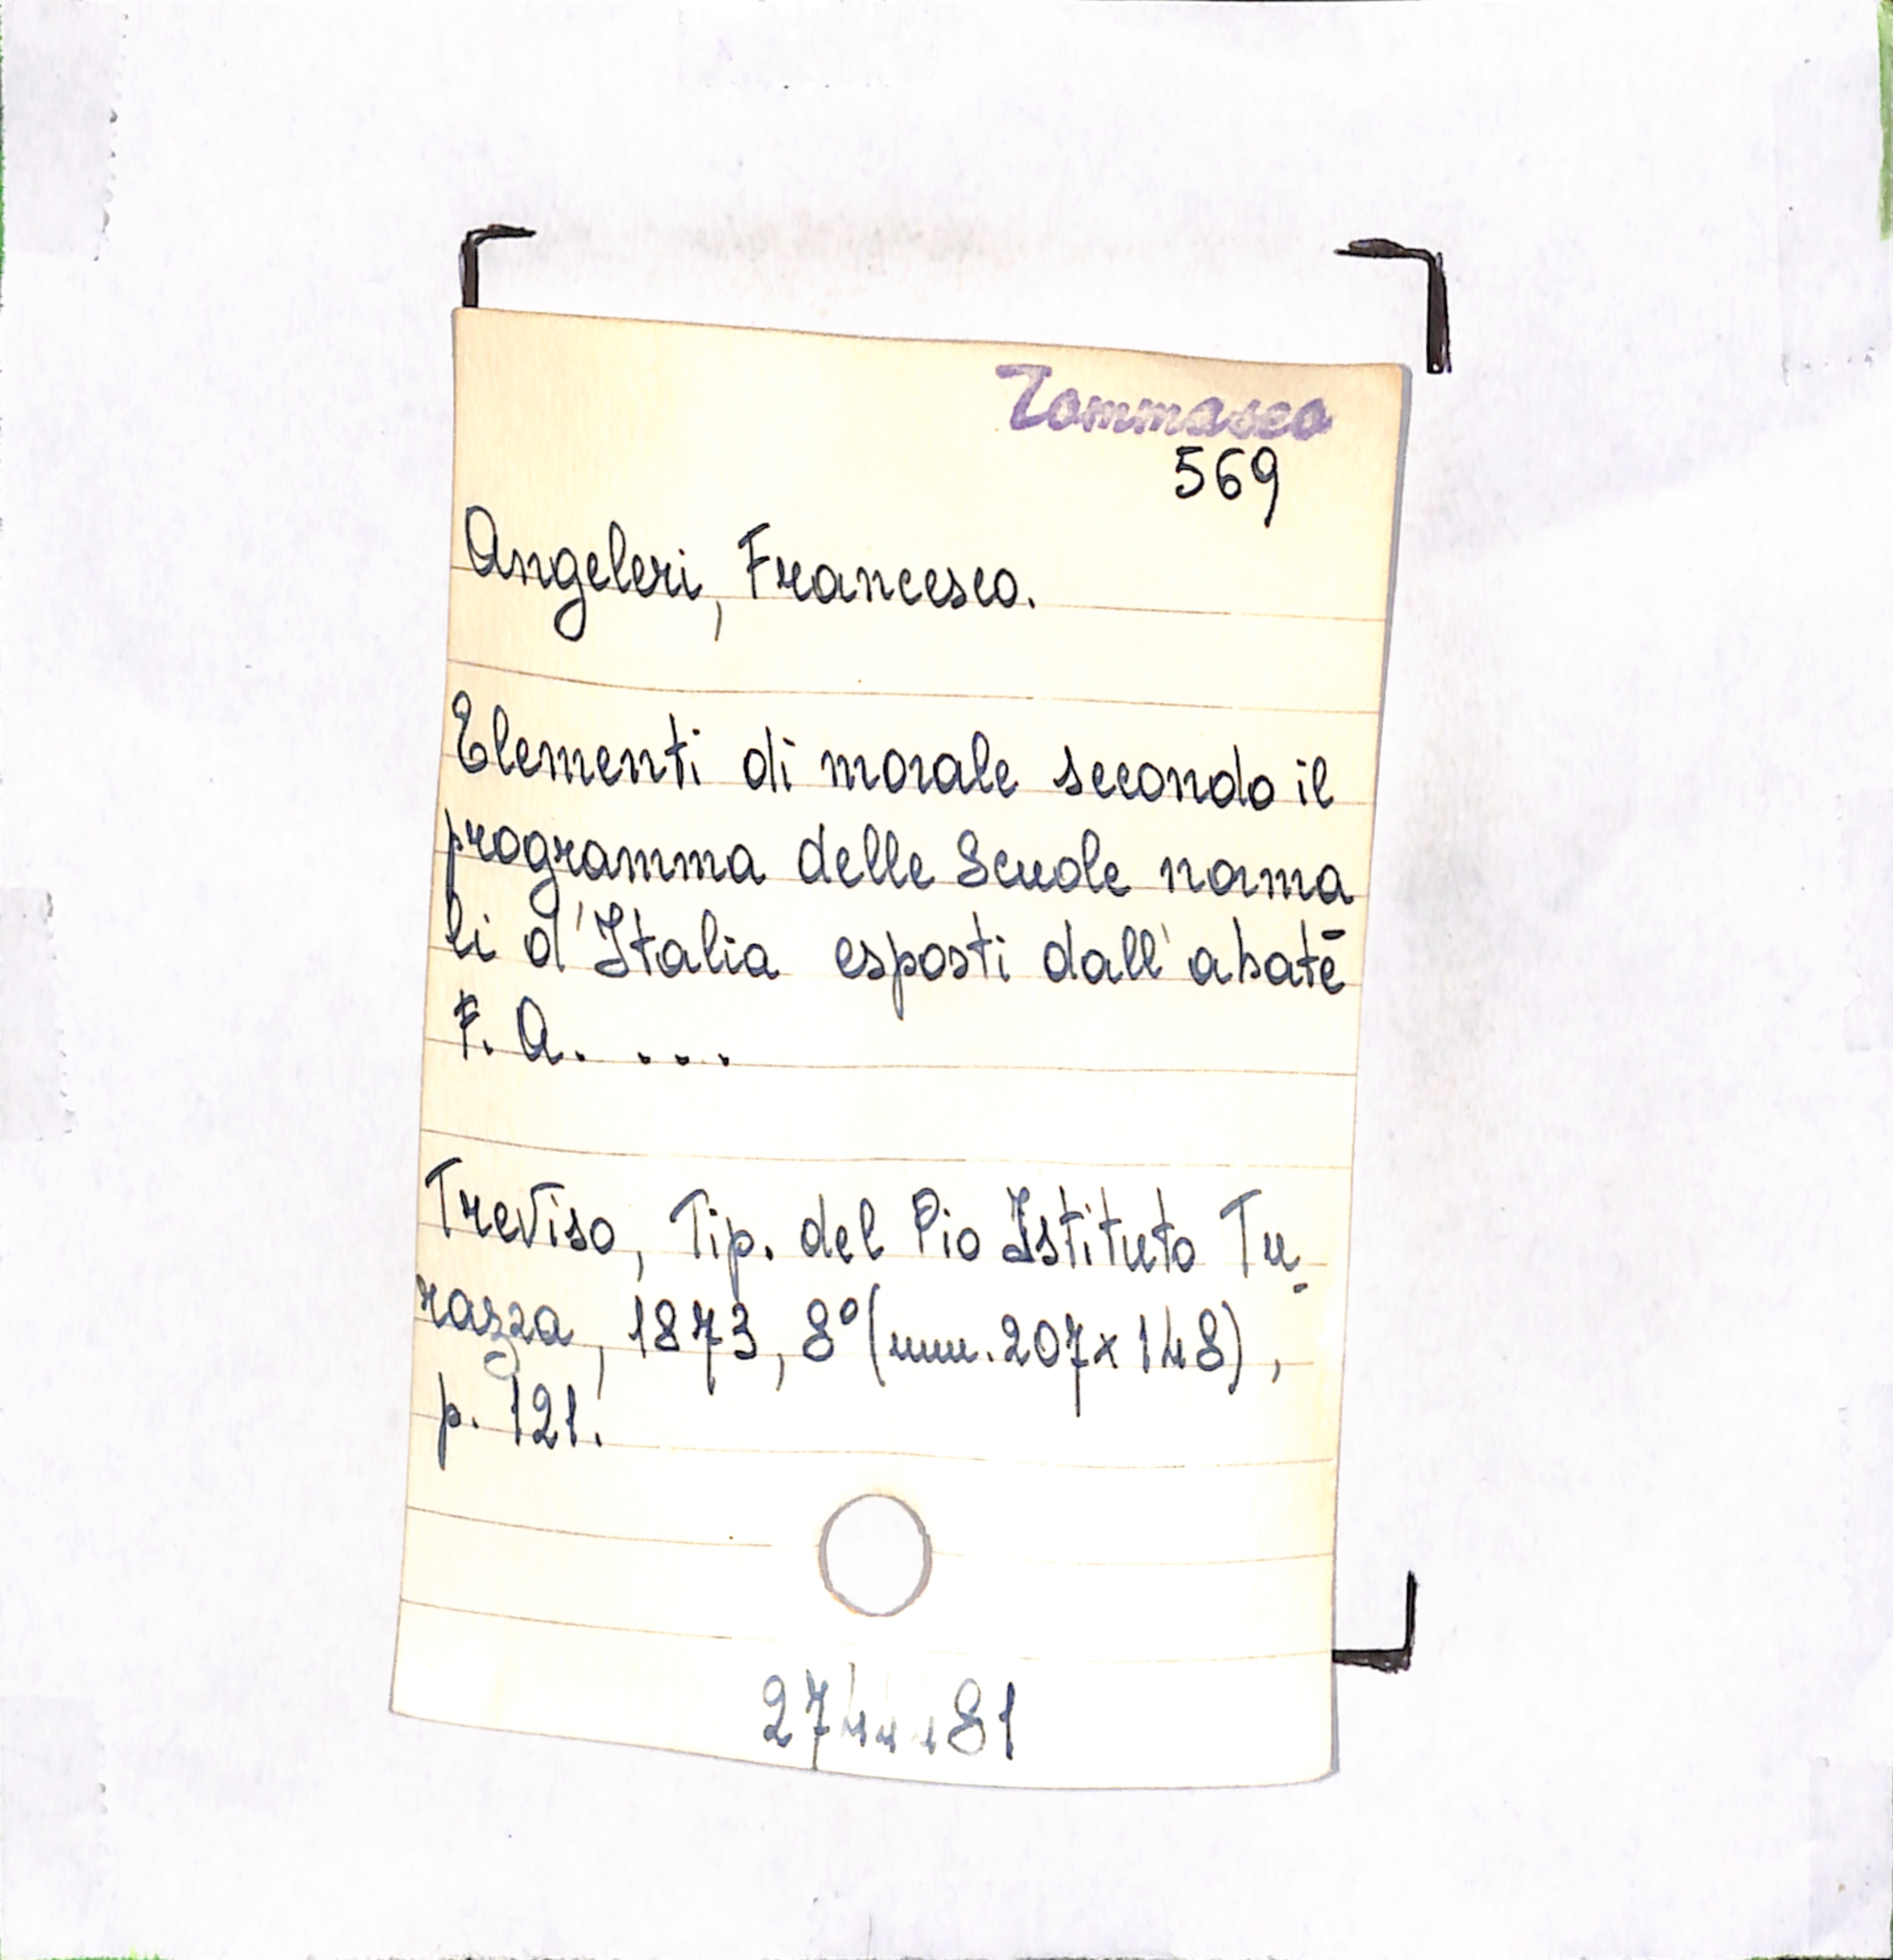 Tommaseo
569
Angeleri, Francesco.
Elementi di morale secondo il
programma delle Scuole norma
li d'Italia esposti dall'abate
F. A. ...
Treviso, Tip. del Pio Istituto Tu-
razza, 1873, 8° (mm. 207x148),
p. 121.